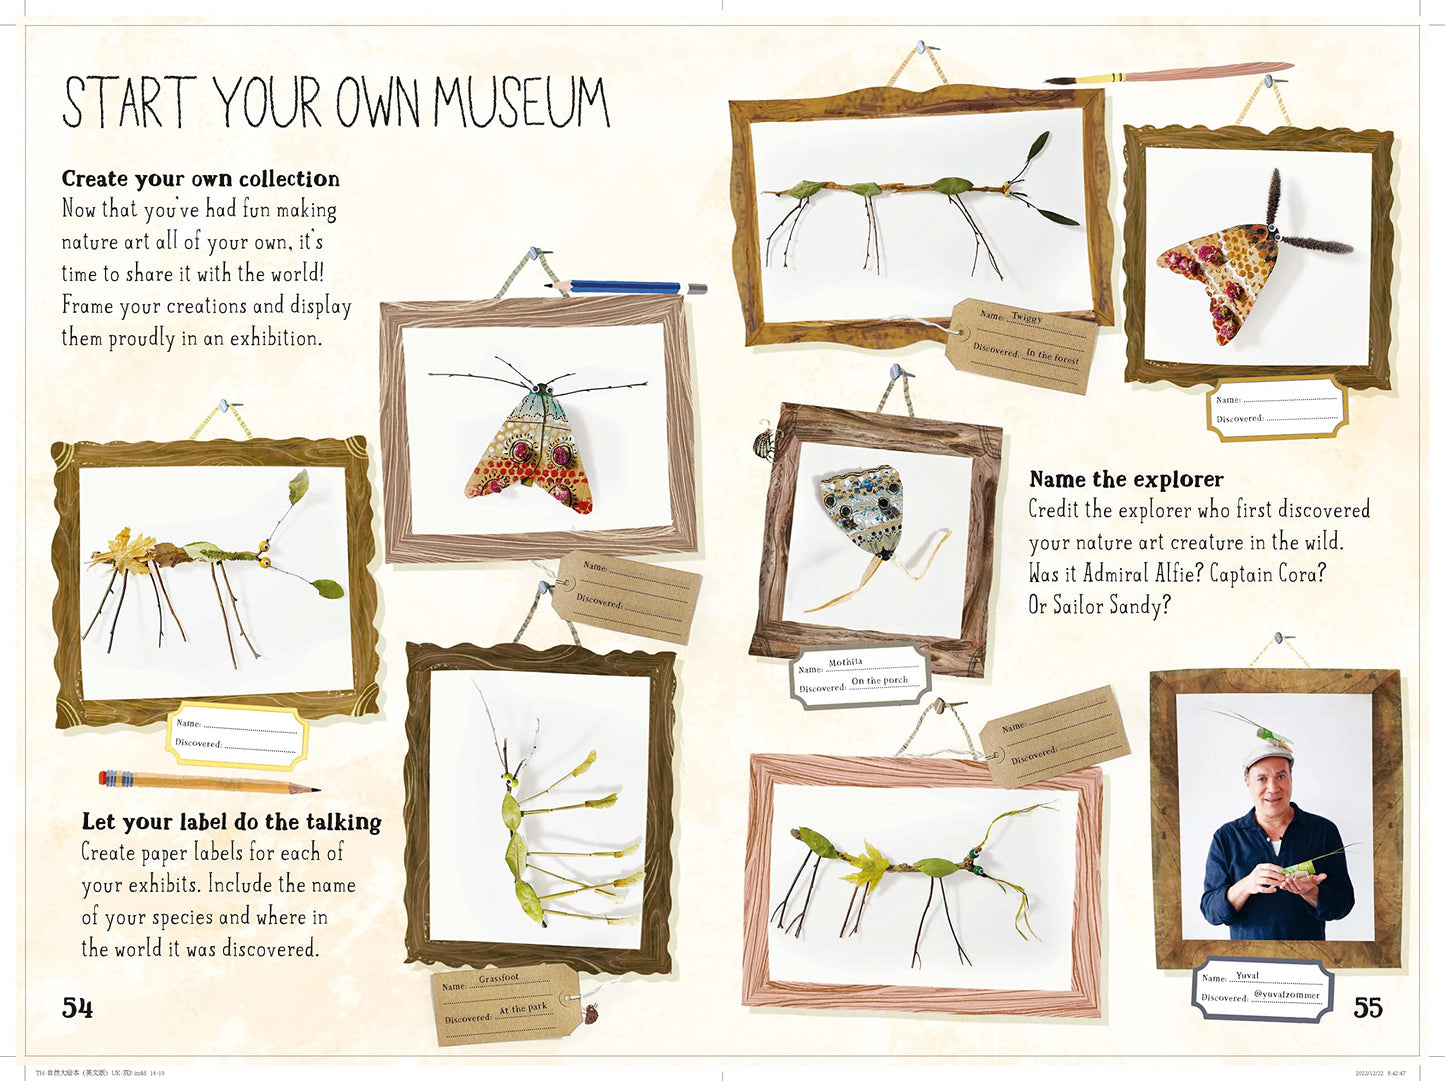 START YOUR OWN MUSEUM
Create your own collection
Now that you've had fun making
nature art all of your own, it's
time to share it with the world!
Frame your creations and display
them proudly in an exhibition.
Name:
Discovered:
Name:
Discovered:
Let your label do the talking
Create paper labels for each of
your exhibits. Include the name
of your species and where in
the world it was discovered.
Name: Grassfoot
Discovered: At the park
54
Name: Twiggy
Discovered: In the forest
Name:
Discovered:
Name the explorer
Credit the explorer who first discovered
your nature art creature in the wild.
Was it Admiral Alfie? Captain Cora?
Or Sailor Sandy?
Name: Mothita
Discovered: On the porch
Name:
Discovered:
Name: Yuval
Discovered: @yuvalzommer
55
TH-自然大绘本（英文版）UK-双P.indd 18-19
2022/12/22 8:42:47